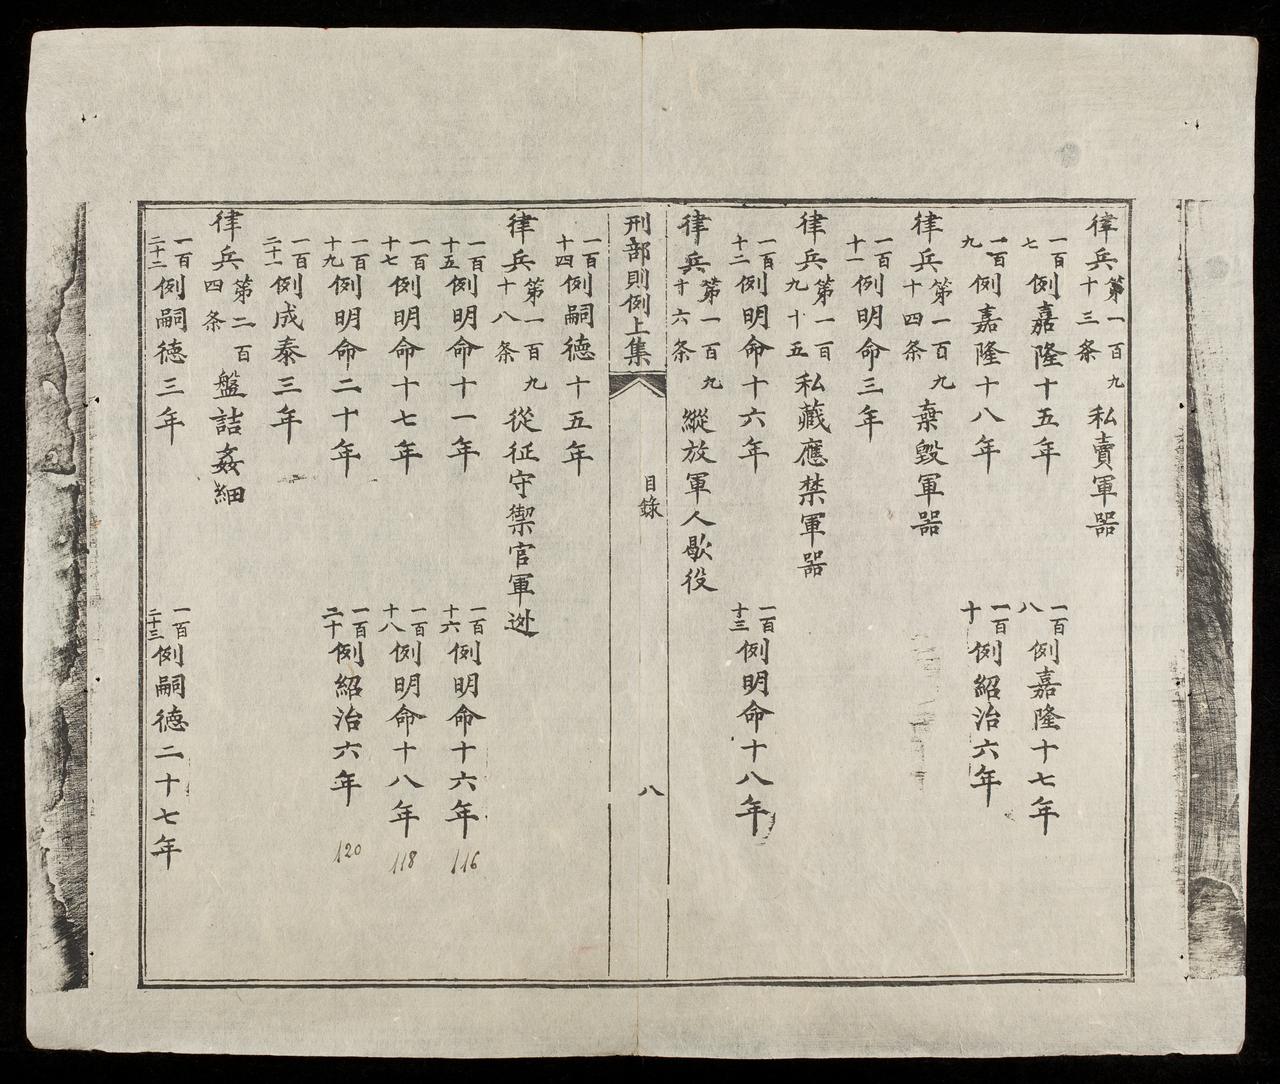 律兵第一百九十三条私賣軍器
一百七例嘉隆十五年 一百八例嘉隆十七年
一百九例嘉隆十八年 一百十例紹治六年
律兵第一百九十四条棄毀軍器
一百十一例明命三年
律兵第一百九十五私藏應禁軍器
一百十二例明命十六年 一百十三例明命十八年
律兵第一百九十六条縱放軍人歇役
刑部則例上集 目錄 八
一百十四例嗣德十五年
律兵第一百九十八条從征守禦官軍迯
一百十五例明命十一年 一百十六例明命十六年 116
一百十七例明命十七年 一百十八例明命十八年 118
一百十九例明命二十年 一百二十例紹治六年 120
一百二十一例成泰三年
律兵第二百四条盤詰姦細
一百二十二例嗣德三年 一百二十三例嗣德二十七年